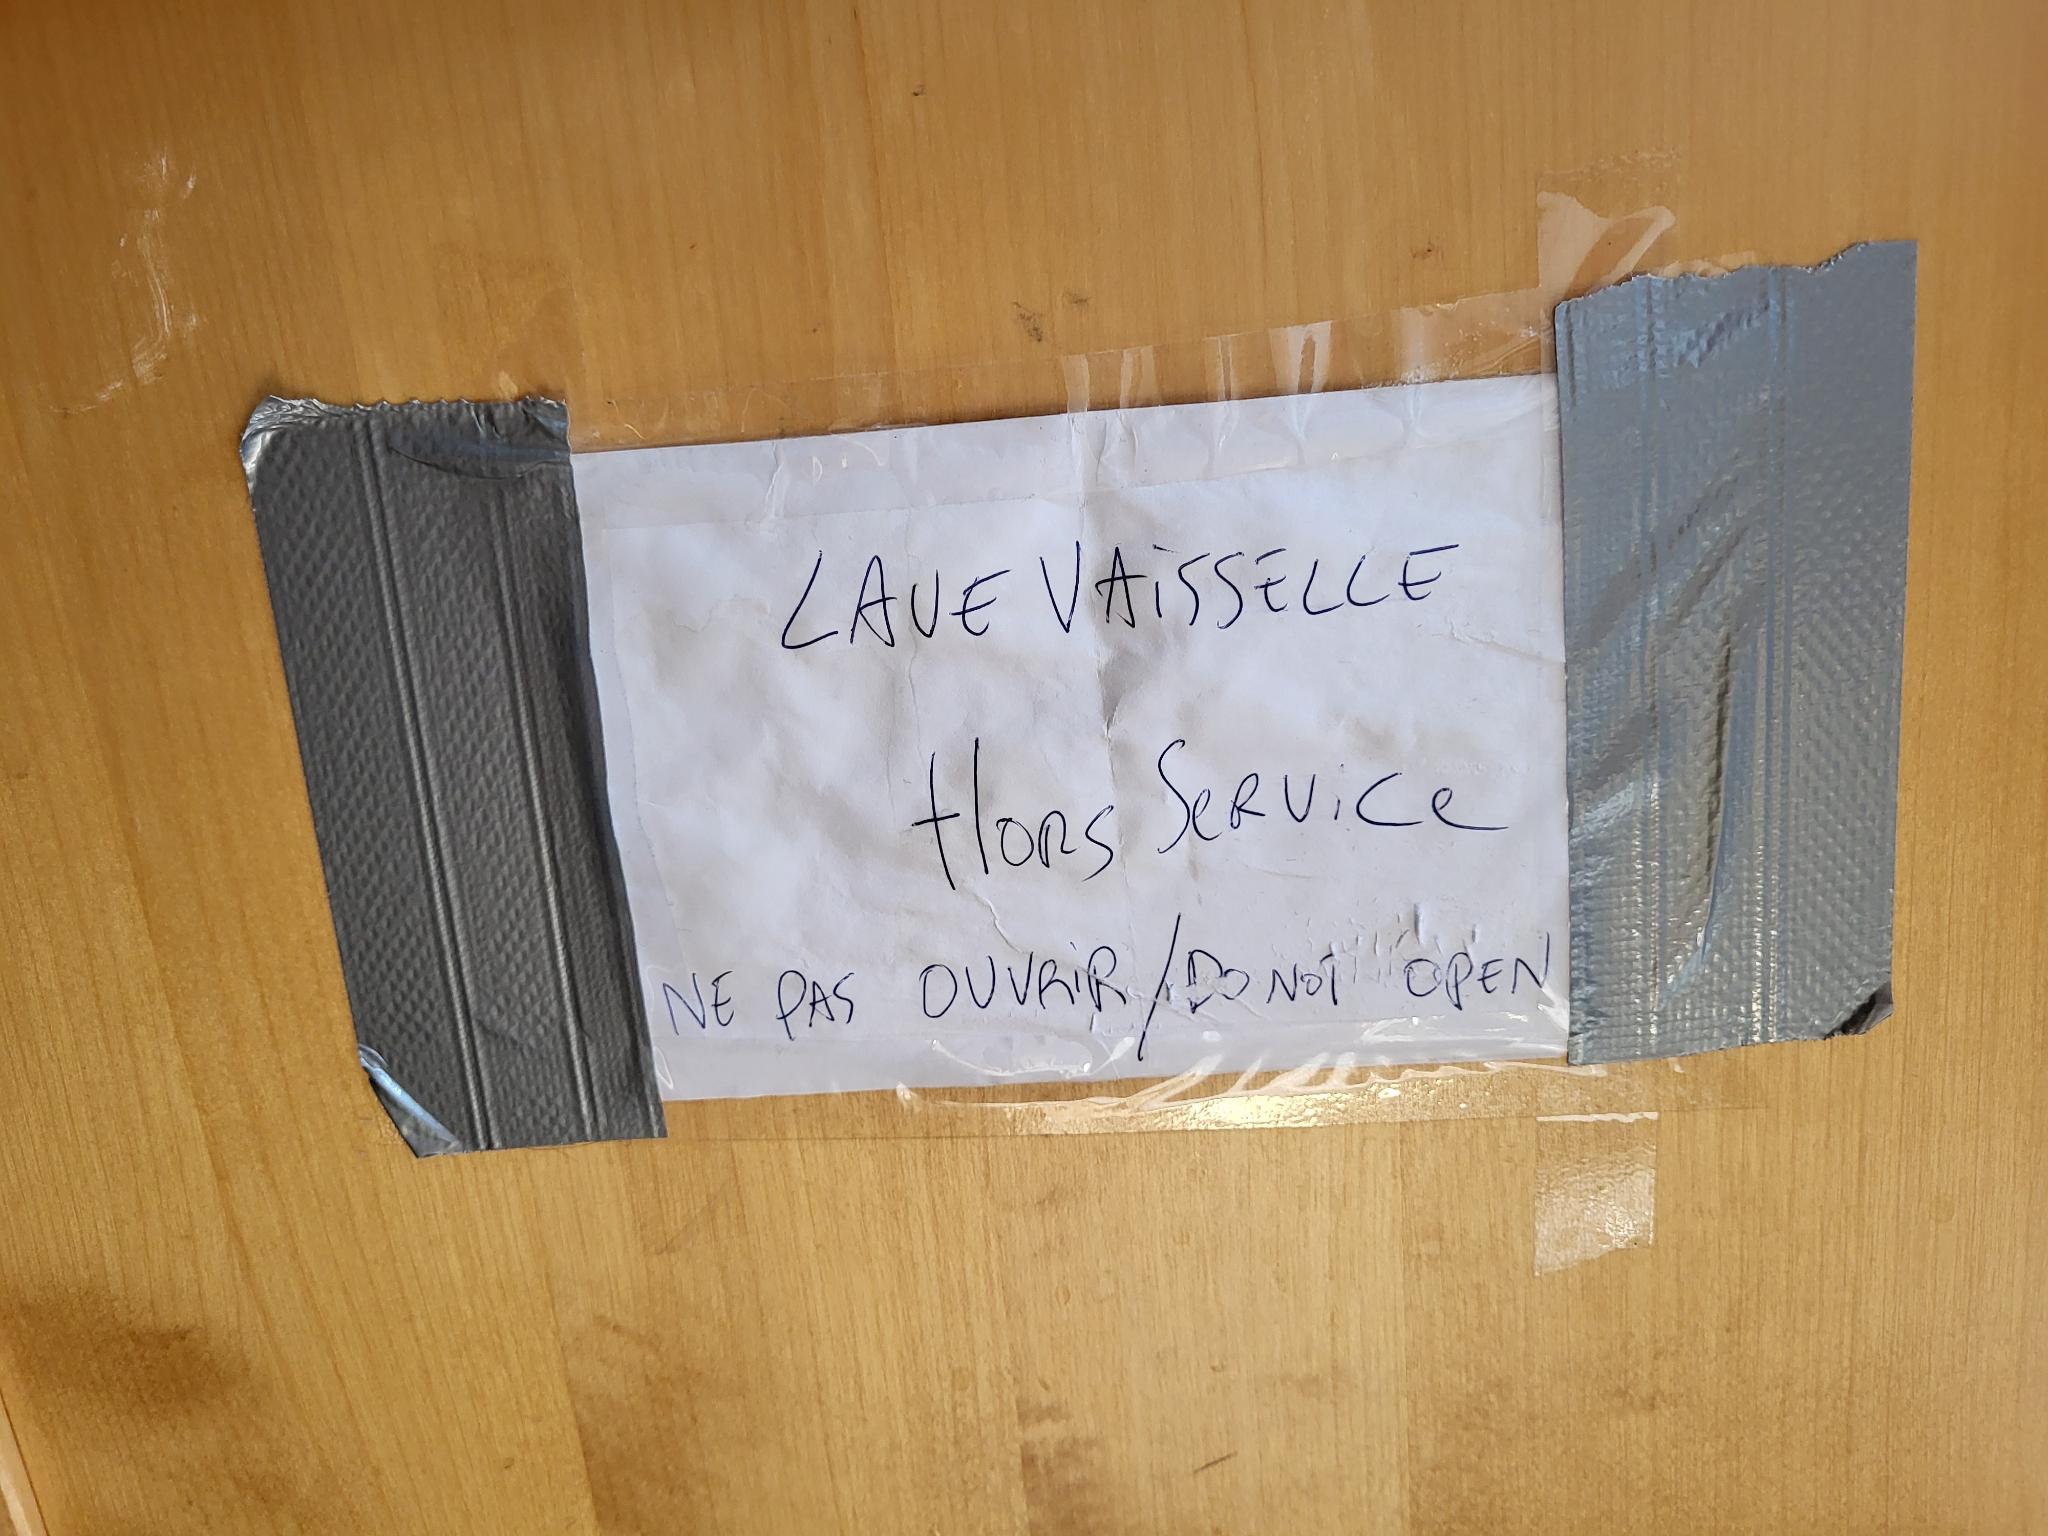 LAVE VAISSELLE
HORS SERVICE
NE PAS OUVRIR/DO NOT OPEN